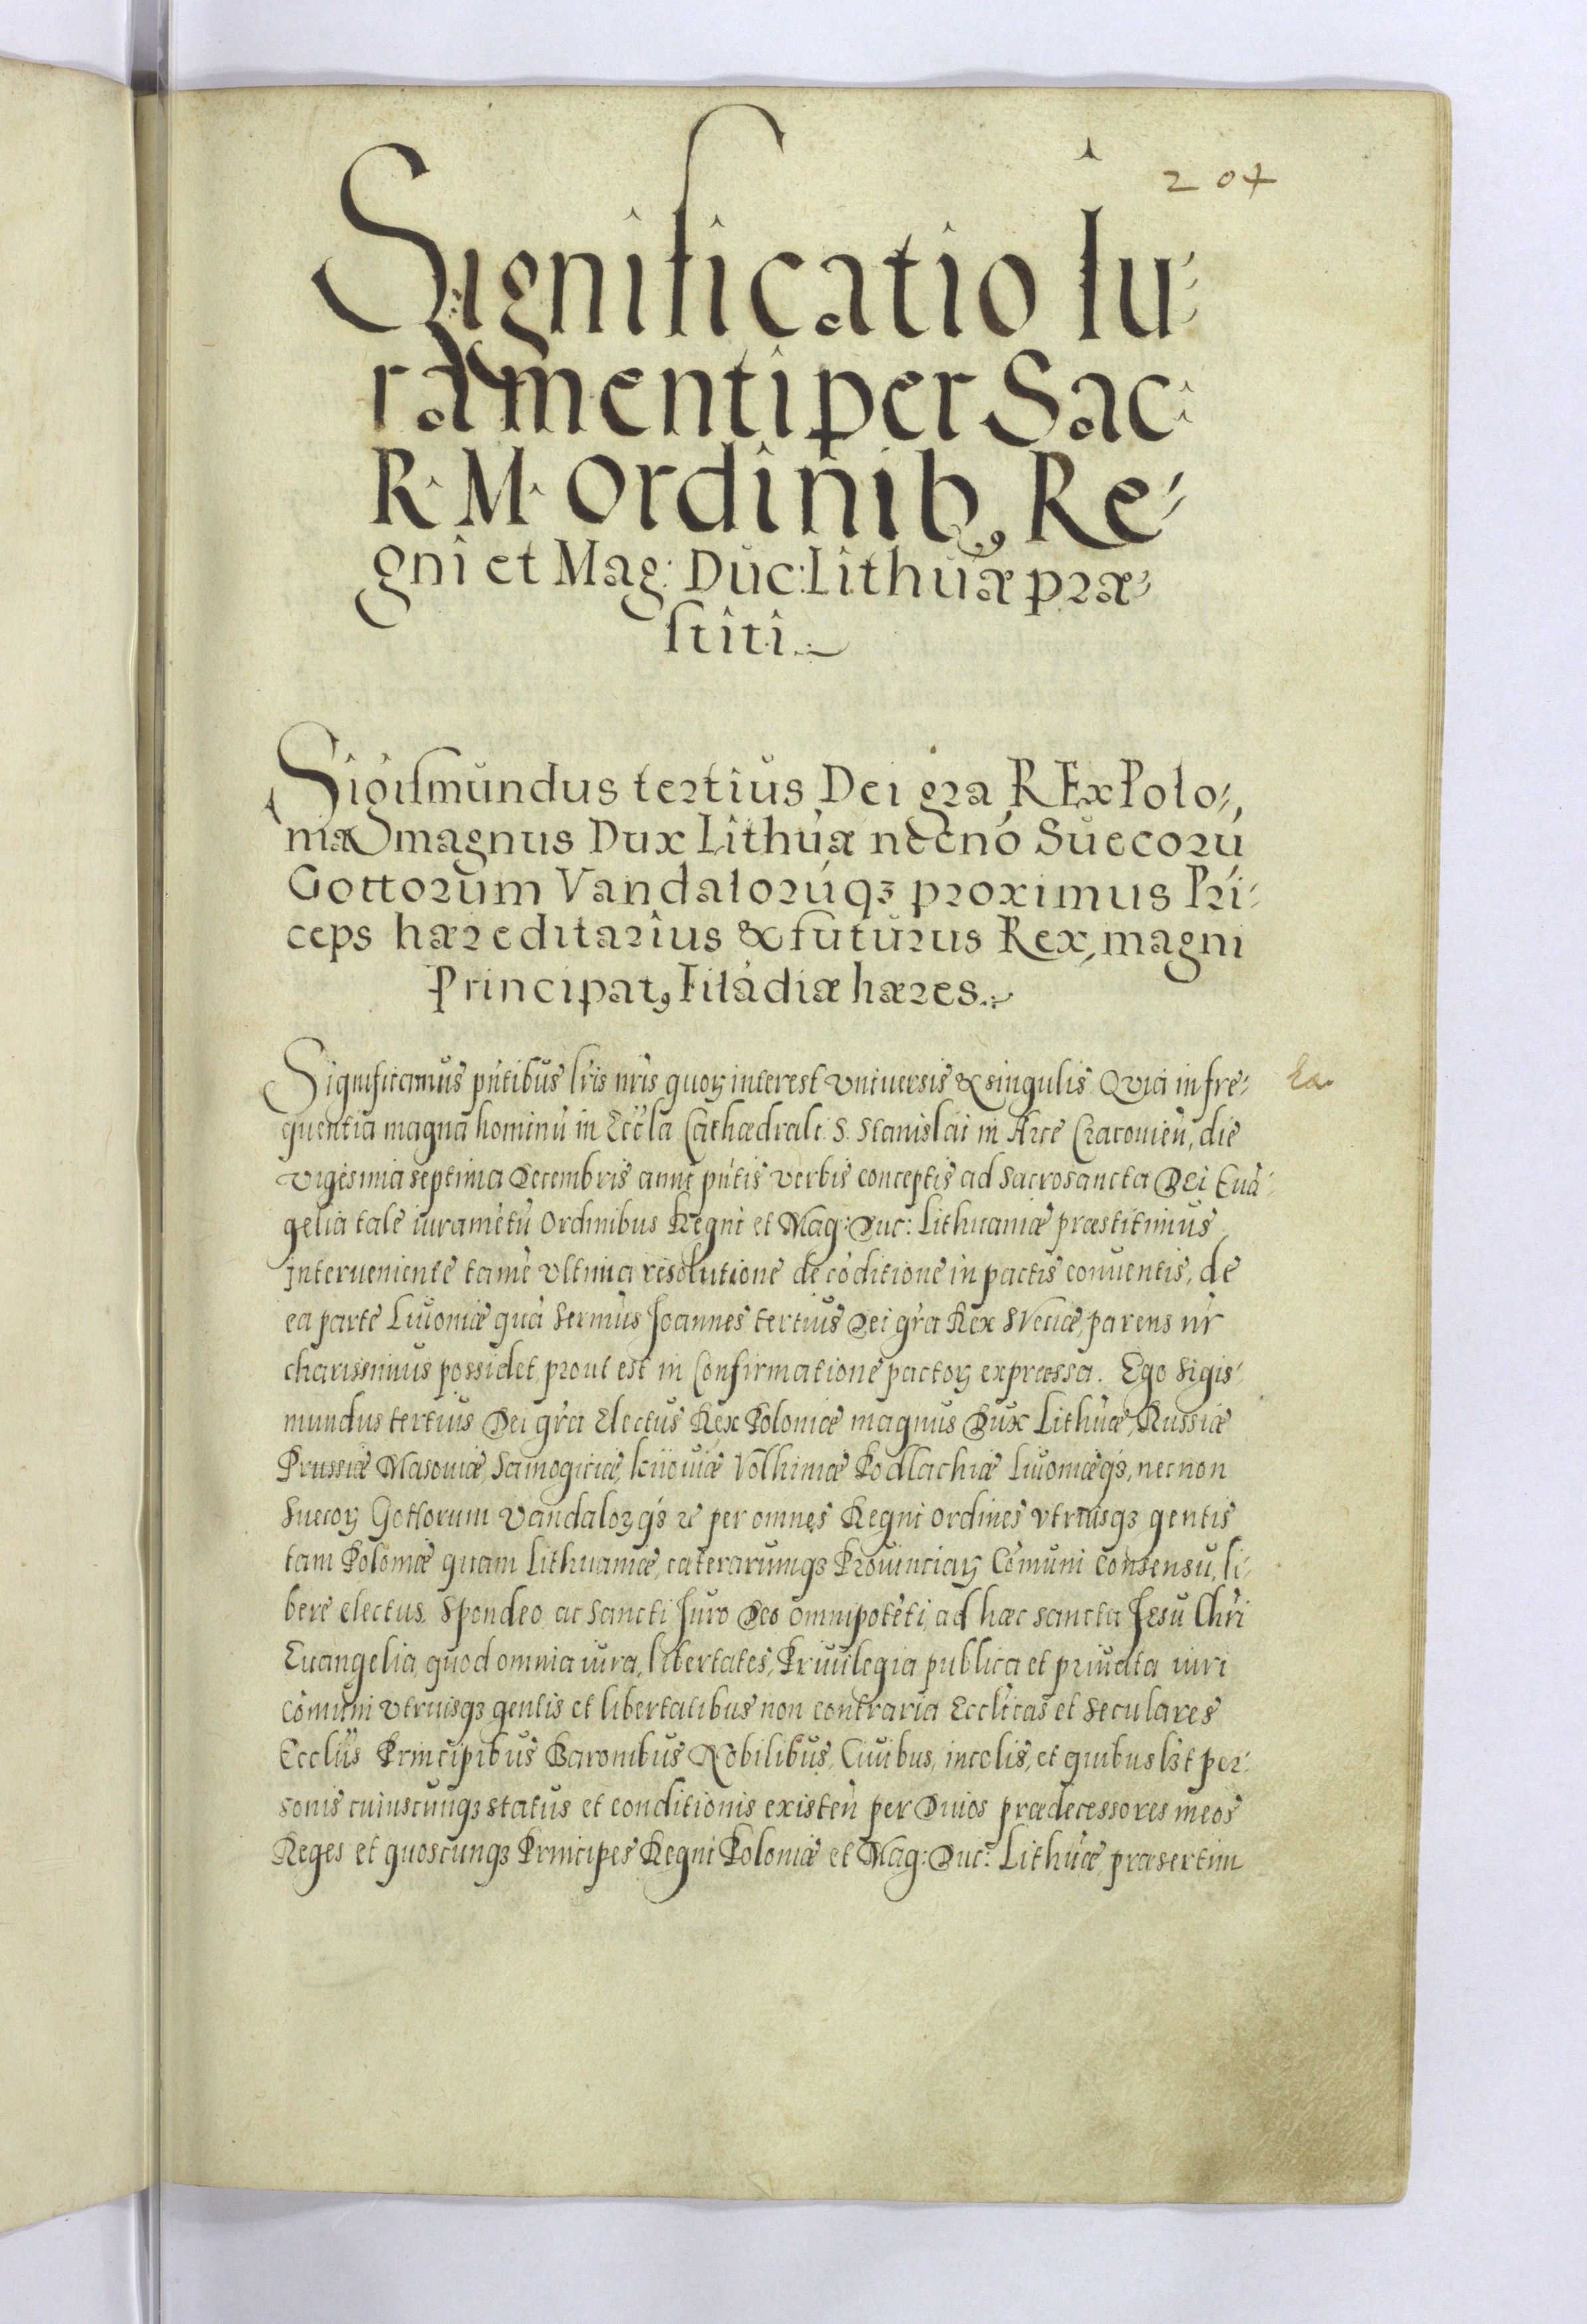 204
Significatio Iu-
ramenti per Sac:
R: M: Ordinibꝰ Re-
gni et Mag: Duc: Lithuæ præ-
stiti.
Sigismundus tertius Dei gra REx Polo-
niæ magnus Dux Lithuæ necnō Suecorū
Gottorum Vandalorūqꝫ proximus Prī-
ceps hæreditarius & futurus Rex, magni
Principatꝰ Filādiæ hæres.
Significamus pn̄tibus lris nris quoꝝ interest vniuersis & singulis Quia in fre- Ex.
quentia magna hominū in Eccla Cathædrali S. Stanislai in Arce Cracouien̄, die
vigesima septima Decembris anni pn̄tis verbis conceptis ad Sacrosancta DEi Euā-
gelia tale iuramētū Ordinibus Regni et Mag: Duc: Lithuaniæ præstitimus
interueniente tamē vltima resolutione de cōditione in pactis conuentis, de
ea parte Liuoniæ quā Sermūs Joannes tertius Dei gra Rex SVeciæ, parens nr̄
charissimus possidet, prout est in Confirmatione pactoꝝ expræssa. Ego Sigis-
mundus tertius Dei gra Electus Rex Poloniæ magnus Dux Lithuæ, Russiæ
Prussiæ Masouiæ, Samogitiæ, kiiouiæ Volhiniæ Podlachiæ Liuoniæqꝫ, necnon
Suecoꝝ Gottorum Vandaloꝝqꝫ &c per omnes Regni ordines vtriusqꝫ gentis
tam Poloniæ quam Lithuaniæ, cæterarumqꝫ Prouinciaꝝ Cōmuni consensu, li-
bere electus. Spondeo ac sancti Juro Deo omnipotēti, ad hæc sancta Jesu Chri
Euangelia, quod omnia iura, libertates, Priuilegia publica et priuata iuri
Cōmuni vtriusqꝫ gentis et libertatibus non contraria Ecclicas et seculares
Eccliis Principibus Baronibus Nobilibus, Ciuibus, incolis, et quibuslꝫt per-
sonis cuiuscunqꝫ status et conditionis existen̄ per Diuos prædecessores meos
Reges et quoscunqꝫ Principes Regni Poloniæ et Mag: Duc: Lithuæ, præsertim